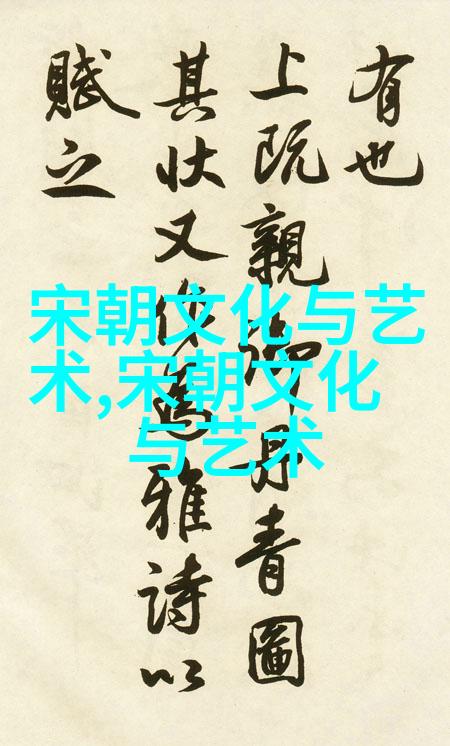 有也
上既親御丹青圖
其状又作為雅詩以
賦之
宋朝文化与艺
术,宋朝文化
与艺术